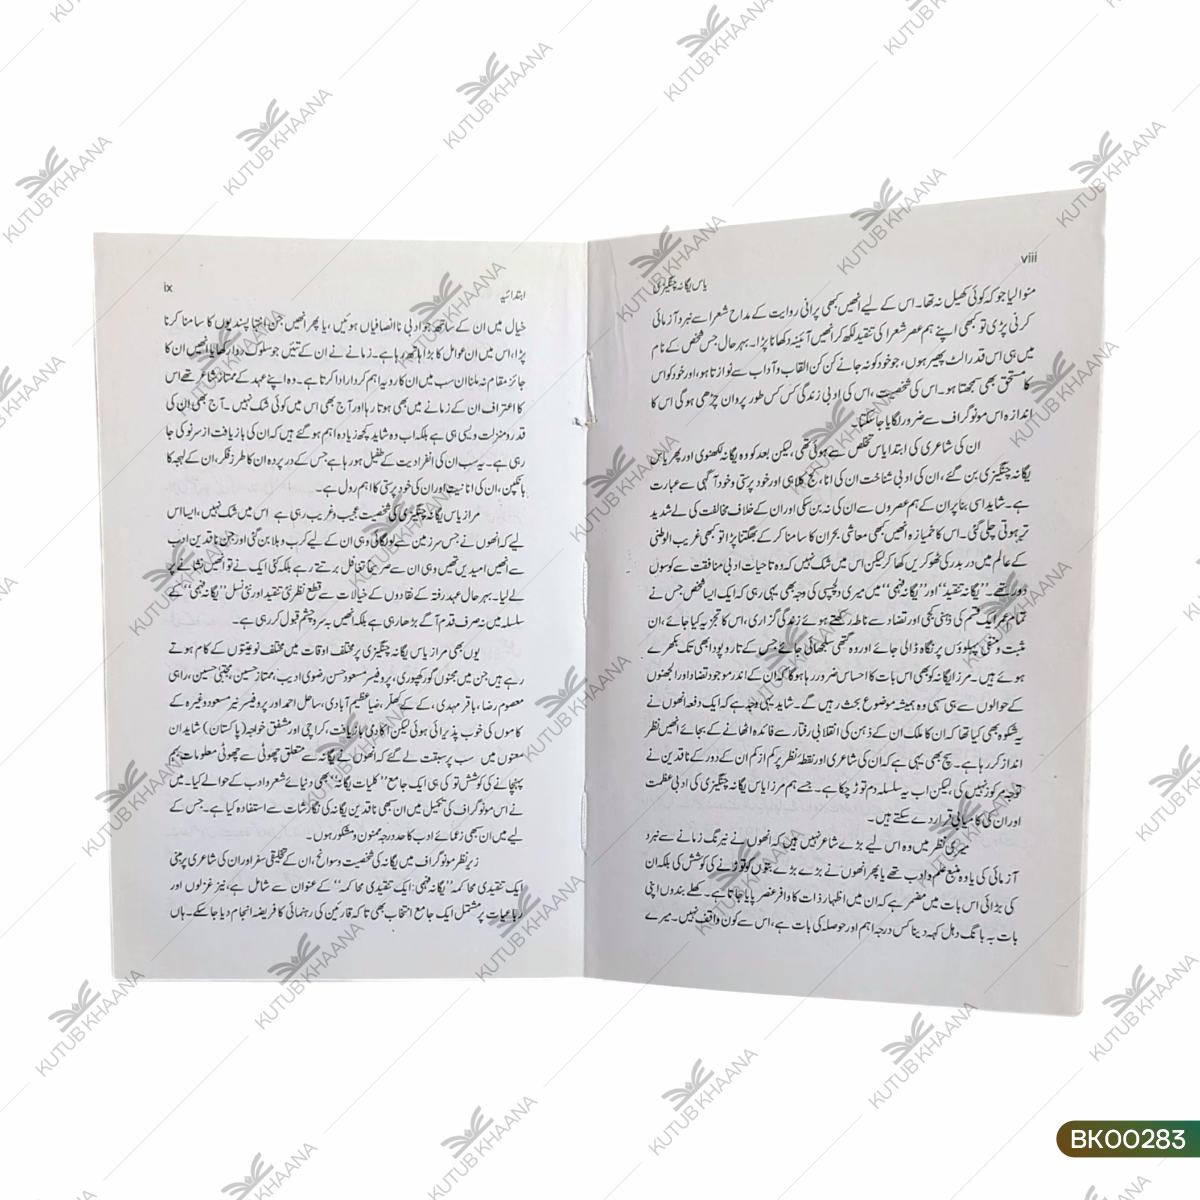 viii
یاس یگانہ چنگیزی
منوا لیا جو کہ کوئی کھیل نہ تھا۔ اس کے لیے انھیں کبھی پرانی روایت کے مداح شعرا سے نبرد آزمائی
کرنی پڑی تو کبھی اپنے ہم عصر شعرا کی تنقید لکھ کر انھیں آئینہ دکھانا پڑا۔ بہر حال جس شخص کے نام
میں ہی اس قدر الٹ پھیر ہوں، جو خود کو نہ جانے کن کن القاب و آداب سے نوازتا ہو، اور خود کو اس
کا مستحق بھی سمجھتا ہو۔ اس کی شخصیت، اس کی ادبی زندگی کس کس طور پروان چڑھی ہوگی اس کا
اندازہ اس مونوگراف سے ضرور لگایا جا سکتا۔
ان کی شاعری کی ابتدا یاس تخلص سے ہوئی تھی، لیکن بعد کو وہ یگانہ لکھنوی اور پھر یاس
یگانہ چنگیزی بن گئے، ان کی ادبی شناخت ان کی انا، کج کلاہی اور خود پرستی و خود آگہی سے عبارت
ہے۔ شاید اسی بنا پر ان کے ہم عصروں سے ان کی نہ بن سکی اور ان کے خلاف مخالفت کی لے شدید
تر ہوتی چلی گئی۔ اس کا خمیازہ انھیں کبھی معاشی بحران کا سامنا کر کے بھگتنا پڑا تو کبھی غریب الوطنی
کے عالم میں در بدر کی ٹھوکریں کھا کر لیکن اس میں شک نہیں کہ وہ تا حیات ادبی منافقت سے کوسوں
دور رہے۔ ”یگانہ تنقید“ اور ”یگانہ فہمی“ میں میری دلچسپی کی وجہ بھی یہی رہی کہ ایک ایسا شخص جس نے
تمام عمر ایک قسم کی ذہنی کجی اور تضاد سے ناطہ رکھتے ہوئے زندگی گزاری، اس کا تجزیہ کیا جائے، ان
مثبت و منفی پہلوؤں پر نگاہ ڈالی جائے اور وہ گتھی سلجھائی جائے جس کے تار و پود ابھی تک بکھرے
ہوئے ہیں۔ مرزا یگانہ کو بھی اس بات کا احساس ضرور رہا ہوگا کہ ان کے اندر موجود تضاد اور الجھنوں
کے حوالوں سے ہی سہی وہ ہمیشہ موضوع بحث رہیں گے۔ شاید یہی وجہ ہے کہ ایک دفعہ انھوں نے
یہ شکوہ بھی کیا تھا کہ ان کا ملک ان کے ذہن کی انقلابی رفتار سے فائدہ اٹھانے کے بجائے انھیں نظر
انداز کر رہا ہے۔ سچ بھی یہی ہے کہ ان کی شاعری اور نقطۂ نظر پر کم از کم ان کے دور کے ناقدین نے
توجہ مرکوز نہیں کی، لیکن اب یہ سلسلہ دم توڑ چکا ہے۔ جسے ہم مرزا یاس یگانہ چنگیزی کی ادبی عظمت
اور ان کی کامیابی قرار دے سکتے ہیں۔
میری نظر میں وہ اس لیے بڑے شاعر نہیں ہیں کہ انھوں نے نیرنگ زمانے سے نبرد
آزمائی کی یا وہ منبع علم و ادب تھے یا پھر انھوں نے بڑے بڑے بتوں کو توڑنے کی کوشش کی بلکہ ان
کی بڑائی اس بات میں مضمر ہے کہ ان میں اظہار ذات کا وافر عنصر پایا جاتا ہے۔ کھلے بندوں اپنی
بات بہ بانگ دہل کہہ دینا کس درجہ اہم اور حوصلہ کی بات ہے، اس سے کون واقف نہیں۔ میرے
ابتدائیہ
ix
خیال میں ان کے ساتھ جو ادبی نا انصافیاں ہوئیں، یا پھر انھیں جن انتہا پسندیوں کا سامنا کرنا
پڑا، اس میں ان عوامل کا بڑا ہاتھ رہا ہے۔ زمانے نے ان کے تئیں جو سلوک روا رکھا یا انھیں ان کا
جائز مقام نہ ملنا ان سب میں ان کا رویہ اہم کردار ادا کرتا ہے۔ وہ اپنے عہد کے ممتاز شاعر تھے اس
کا اعتراف ان کے زمانے میں بھی ہوتا رہا اور آج بھی اس میں کوئی شک نہیں۔ آج بھی ان کی
قدر و منزلت ویسی ہی ہے بلکہ اب وہ شاید کچھ زیادہ اہم ہو گئے ہیں کہ ان کی بازیافت از سر نو کی جا
رہی ہے۔ یہ سب ان کی انفرادیت کے طفیل ہو رہا ہے جس کے در پردہ ان کا طرز فکر، ان کے لہجہ کا
بانکپن، ان کی انانیت اور ان کی خود پرستی کا اہم رول ہے۔
مرزا یاس یگانہ چنگیزی کی شخصیت عجیب و غریب رہی ہے اس میں شک نہیں، ایسا اس
لیے کہ انھوں نے جس سرزمین سے لو لگائی وہی ان کے لیے کرب و بلا بن گئی اور جن ناقدین ادب
سے انھیں امیدیں تھیں وہی ان سے صریحاً تغافل برتتے رہے بلکہ کئی ایک نے تو انھیں نشانے پر
لے لیا۔ بہر حال عہد رفتہ کے نقادوں کے خیالات سے قطع نظر نئی تنقید اور نئی نسل ”یگانہ فہمی“ کے
سلسلہ میں نہ صرف قدم آگے بڑھا رہی ہے بلکہ انھیں بہ سر و چشم قبول کر رہی ہے۔
یوں بھی مرزا یاس یگانہ چنگیزی پر مختلف اوقات میں مختلف نوعیتوں کے کام ہوتے
رہے ہیں جن میں مجنوں گورکھپوری، پروفیسر مسعود حسن رضوی ادیب، ممتاز حسین، مجتبیٰ حسین، راہی
معصوم رضا، باقر مہدی، کے کے کھلر، ضیا عظیم آبادی، ساحل احمد اور پروفیسر نیر مسعود وغیرہ کے
کاموں کی خوب پذیرائی ہوئی لیکن اکادمی بازیافت، کراچی اور مشفق خواجہ (پاکستان) شاید ان
معنوں میں سب پر سبقت لے گئے کہ انھوں نے یگانہ سے متعلق چھوٹی سے چھوٹی معلومات بہم
پہنچانے کی کوشش تو کی ہی ایک جامع ”کلیات یگانہ“ بھی دنیائے شعر و ادب کے حوالے کیا۔ میں
نے اس مونوگراف کی تکمیل میں ان بھی ناقدین یگانہ کی نگارشات سے استفادہ کیا ہے۔ جس کے
لیے میں ان بھی زعمائے ادب کا حد درجہ ممنون و مشکور ہوں۔
زیر نظر مونوگراف میں یگانہ کی شخصیت و سوانح، ان کے تخلیقی سفر اور ان کی شاعری پر مبنی
ایک تنقیدی محاکمہ ”یگانہ فہمی: ایک تنقیدی محاکمہ“ کے عنوان سے شامل ہے، نیز غزلوں اور
رباعیات پر مشتمل ایک جامع انتخاب بھی تا کہ قارئین کی رہنمائی کا فریضہ انجام دیا جا سکے۔ ہاں
KUTUB KHAANA
BK00283